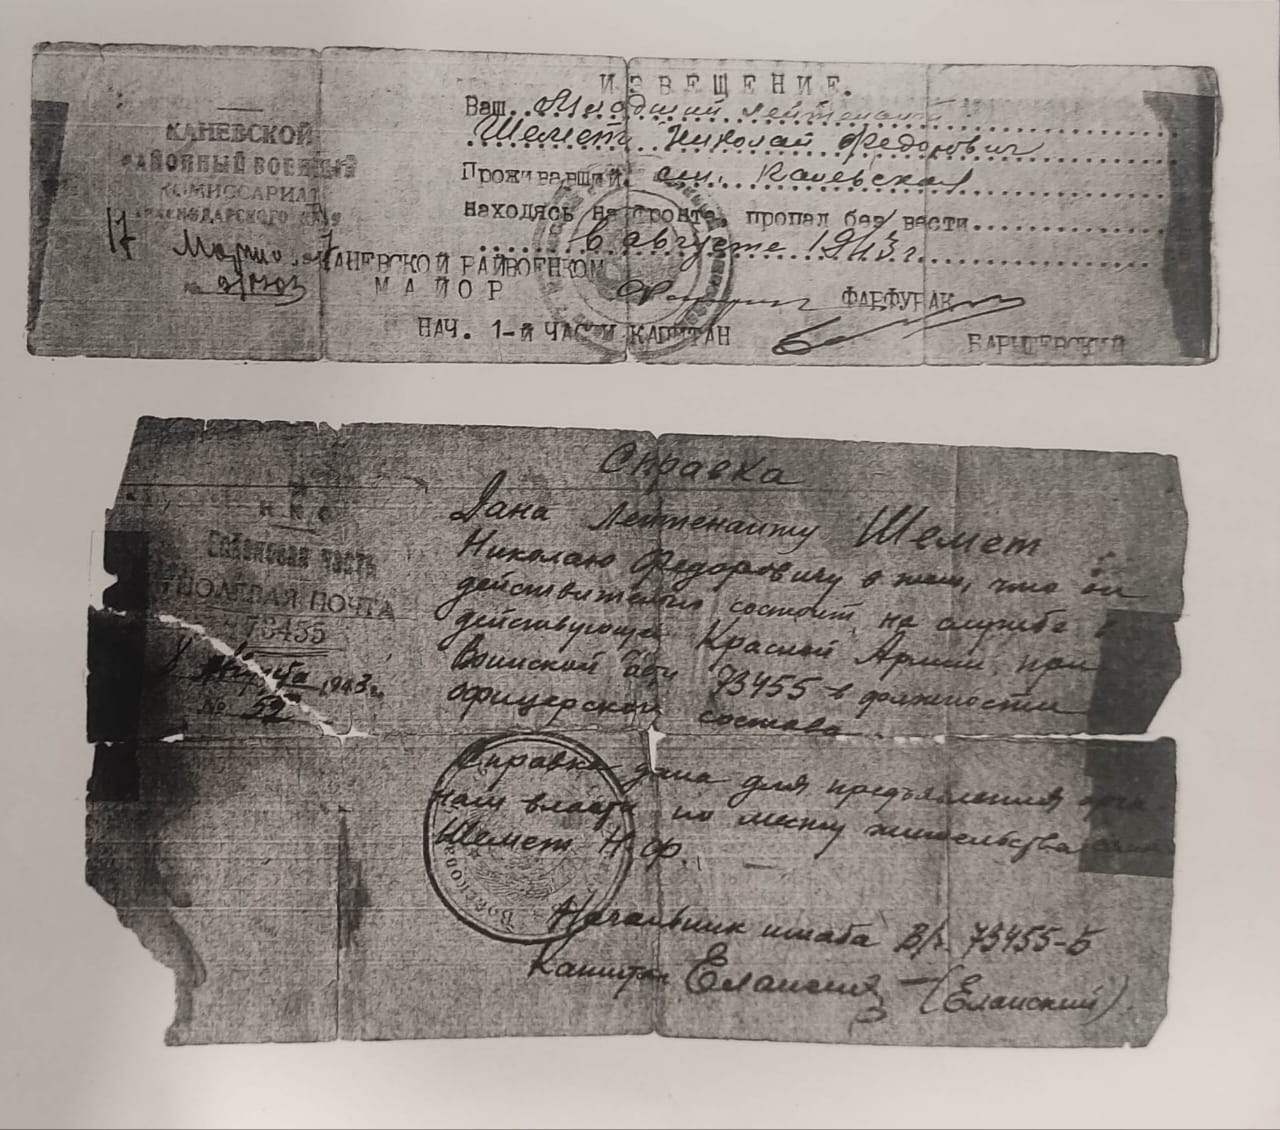 ИЗВЕЩЕНИЕ.
КАНЕВСКОЙ
РАЙОННЫЙ ВОЕННЫЙ
КОМИССАРИАТ
КРАСНОДАРСКОГО КРАЯ
17 Марта
№
Ваш Младший лейтенант
Шемет Николай Федорович
Проживавший ст. Каневская
находясь на фронте, пропал без вести
в августе 1943 г.
КАНЕВСКОЙ РАЙВОЕНКОМ
МАЙОР ФАРФУРАК
НАЧ. 1-й ЧАСТИ КАПИТАН
Справка
Н К О
Войсковая часть
ПОЛЕВАЯ ПОЧТА
73455
1943 г.
№ 52
Дана Лейтенанту Шемет
Николаю Федоровичу в том, что он
действительно состоит на службе в
действующей Красной Армии при
Воинской 73455-в должности
офицерского состава.
Справка дана для предъявления
власти по месту жительства
Шемет Н. Ф.
Начальник штаба В/ч 73455-Б
Капитан Еланский (Еланский).